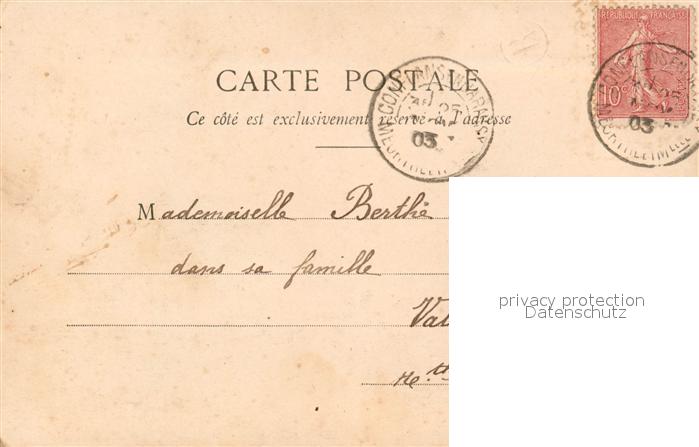 RÉPUBLIQUE FRANÇAISE
10c
CARTE POSTALE
Ce côté est exclusivement réservé à l'adresse
CONFLANS EN JARNISY
25
03
Mademoiselle Berthe
dans sa famille
Val
privacy protection
Datenschutz